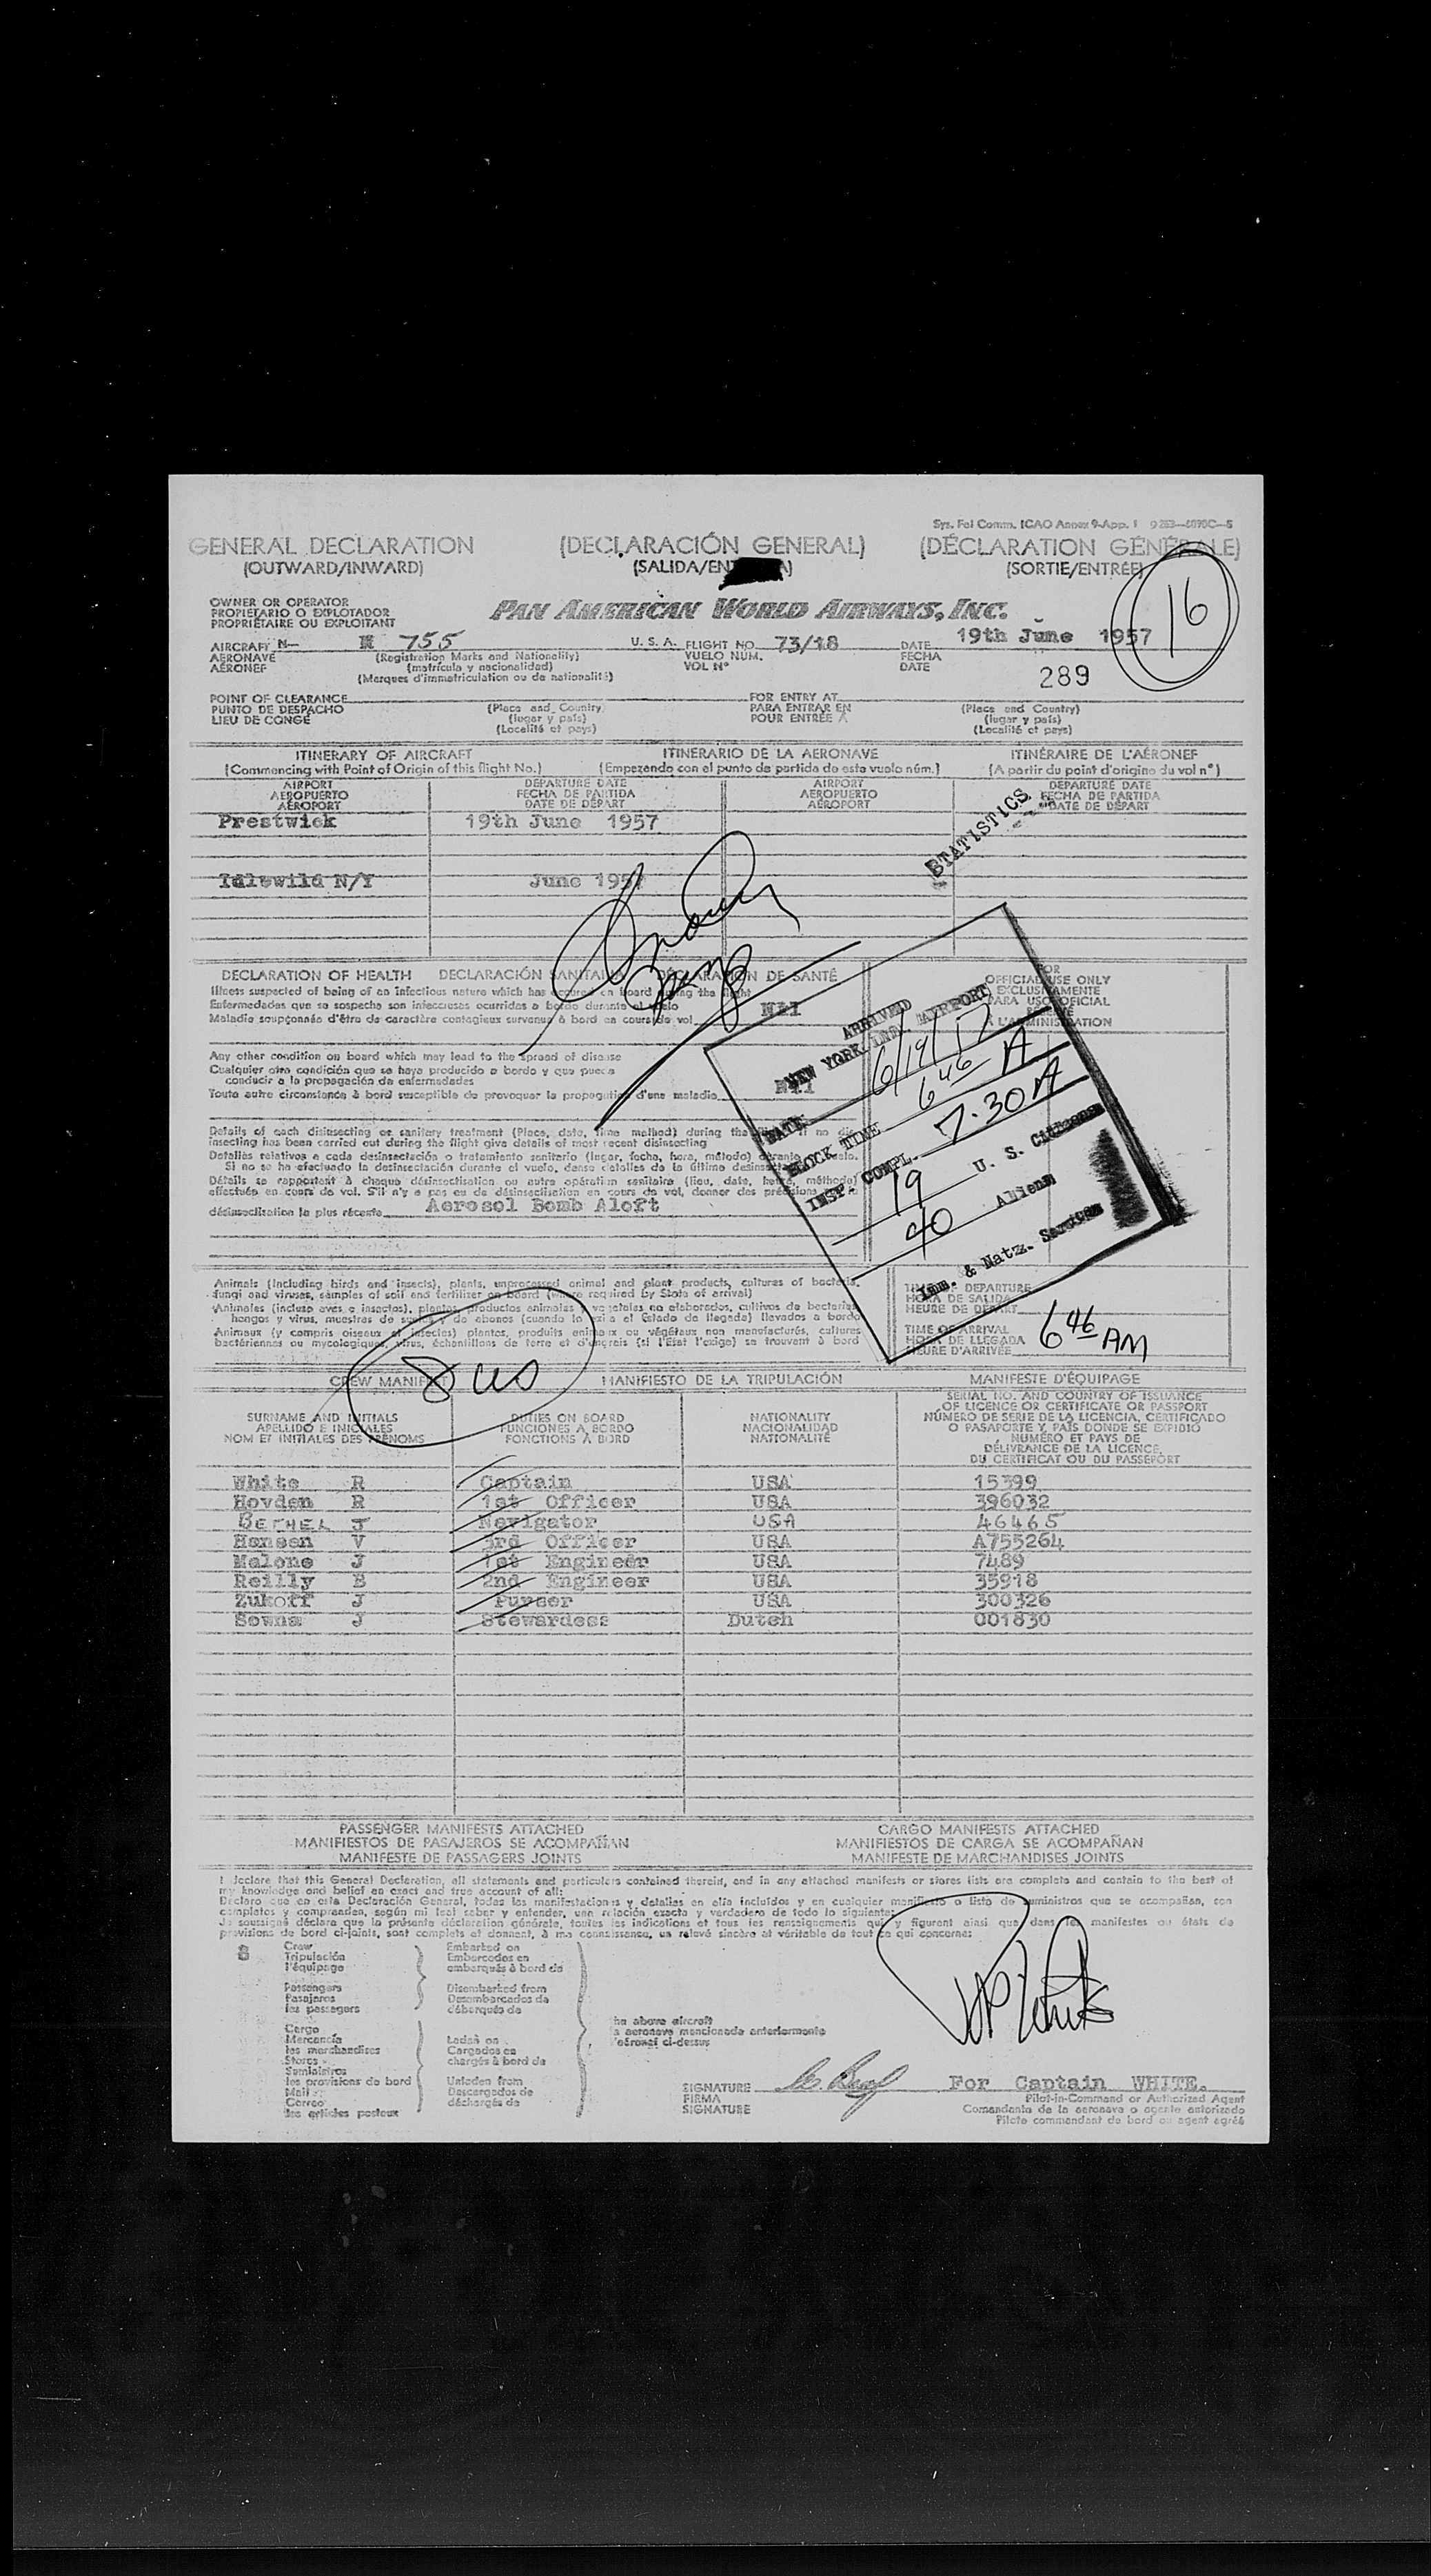 Sys. Fol Comm. ICAO Annex 9-App. 1
GENERAL DECLARATION (DECLARACIÓN GENERAL) (DÉCLARATION GÉNÉRALE)
(OUTWARD/INWARD) (SALIDA/ENTRADA) (SORTIE/ENTRÉE)
16
OWNER OR OPERATOR
PROPIETARIO O EXPLOTADOR
PROPRIÉTAIRE OU EXPLOITANT
PAN AMERICAN WORLD AIRWAYS, INC.
AIRCRAFT N— N 755 U. S. A. FLIGHT NO. 73/18 DATE 19th June 1957
AERONAVE (Registration Marks and Nationality) VUELO NÚM. FECHA
AÉRONEF (matrícula y nacionalidad) VOL Nº DATE
(Marques d'immatriculation ou de nationalité)
289
POINT OF CLEARANCE (Place and Country) FOR ENTRY AT (Place and Country)
PUNTO DE DESPACHO (lugar y país) PARA ENTRAR EN (lugar y país)
LIEU DE CONGÉ (Localité et pays) POUR ENTRÉE À (Localité et pays)
ITINERARY OF AIRCRAFT ITINERARIO DE LA AERONAVE ITINÉRAIRE DE L'AÉRONEF
(Commencing with Point of Origin of this flight No.) (Empezando con el punto de partida de este vuelo núm.) (A partir du point d'origine du vol nº)
AIRPORT DEPARTURE DATE AIRPORT DEPARTURE DATE
AEROPUERTO FECHA DE PARTIDA AEROPUERTO FECHA DE PARTIDA
AÉROPORT DATE DE DÉPART AÉROPORT DATE DE DÉPART
Prestwick 19th June 1957
STATISTICS
Idlewild N/Y June 1957
DECLARATION OF HEALTH DECLARACIÓN SANITARIA DÉCLARATION DE SANTÉ
Illness suspected of being of an infectious nature which has occured on board during the flight
Enfermedades que se sospecha son infecciosas ocurridas a bordo durante el vuelo
Maladie soupçonnée d'être de caractère contagieux survenue à bord en cours de vol NIl
FOR
OFFICIAL USE ONLY
EXCLUSIVAMENTE
PARA USO OFICIAL
RÉSERVÉ
À L'ADMINISTRATION
Any other condition on board which may lead to the spread of disease
Cualquier otra condición que se haya producido a bordo y que pueda
conducir a la propagación de enfermedades
Toute autre circonstance à bord susceptible de provoquer la propagation d'une maladie NIl
Details of each disinsecting or sanitary treatment (Place, date, time method) during the flight. If no dis-
insecting has been carried out during the flight give details of most recent disinsecting
Detalles relativos a cada desinsectación o tratamiento sanitario (lugar, fecha, hora, método) durante el vuelo.
Si no se ha efectuado la desinsectación durante el vuelo, dense detalles de la última desinsectación
Détails se rapportant à chaque désinsectisation ou autre opération sanitaire (lieu, date, heure, méthode)
effectuée en cours de vol. S'il n'y a pas eu de désinsectisation en cours de vol, donner des précisions sur la
désinsectisation la plus récente Aerosol Bomb Aloft
ARRIVED
NEW YORK INT. AIRPORT
DATE 6/19/57
BLOCK TIME 6 46 A
INSP. COMPL. 7.30 A
19 U. S. Citizens
40 Aliens
Imm. & Natz. Service
Animals (including birds and insects), plants, unprocessed animal and plant products, cultures of bacteria,
fungi and viruses, samples of soil and fertilizer on board (where required by State of arrival)
Animales (incluso aves e insectos), plantas, productos animales y vegetales no elaborados, cultivos de bacterias,
hongos y virus, muestras de suelos y de abonos (cuando lo exija el Estado de llegada) llevados a bordo
Animaux (y compris oiseaux et insectes) plantes, produits animaux ou végétaux non manufacturés, cultures
bactériennes ou mycologiques, virus, échantillons de terre et d'engrais (si l'État l'exige) se trouvant à bord
TIME OF DEPARTURE
HORA DE SALIDA
HEURE DE DÉPART
TIME OF ARRIVAL
HORA DE LLEGADA
HEURE D'ARRIVÉE 6 46 AM
8 us
CREW MANIFEST MANIFIESTO DE LA TRIPULACIÓN MANIFESTE D'ÉQUIPAGE
SURNAME AND INITIALS
APELLIDO E INICIALES
NOM ET INITIALES DES PRÉNOMS
DUTIES ON BOARD
FUNCIONES A BORDO
FONCTIONS À BORD
NATIONALITY
NACIONALIDAD
NATIONALITÉ
SERIAL NO. AND COUNTRY OF ISSUANCE
OF LICENCE OR CERTIFICATE OR PASSPORT
NÚMERO DE SERIE DE LA LICENCIA, CERTIFICADO
O PASAPORTE Y PAÍS DONDE SE EXPIDIÓ
NUMÉRO ET PAYS DE
DÉLIVRANCE DE LA LICENCE,
DU CERTIFICAT OU DU PASSEPORT
White R Captain USA 15399
Hovden R 1st Officer USA 396032
BETHEL J Navigator USA 46465
Hansen V 3rd Officer USA A755264
Malone J 1st Engineer USA 7489
Reilly B 2nd Engineer USA 35918
Zukoff J Purser USA 300326
Sowna J Stewardess Dutch 001830
PASSENGER MANIFESTS ATTACHED CARGO MANIFESTS ATTACHED
MANIFIESTOS DE PASAJEROS SE ACOMPAÑAN MANIFIESTOS DE CARGA SE ACOMPAÑAN
MANIFESTE DE PASSAGERS JOINTS MANIFESTE DE MARCHANDISES JOINTS
I declare that this General Declaration, all statements and particulars contained therein, and in any attached manifests or stores lists are complete and contain to the best of
my knowledge and belief an exact and true account of all:
Declaro que en esta Declaración General, todas las manifestaciones y detalles en ella incluidos y en cualquier manifiesto o lista de suministros que se acompañan, son
completos y comprenden, según mi leal saber y entender, una relación exacta y verdadera de todo lo siguiente:
Je soussigné déclare que la présente déclaration générale, toutes les indications et tous les renseignements qui y figurent ainsi que dans les manifestes ou états de
provisions de bord ci-joints, sont complets et donnent, à ma connaissance, un relevé sincère et véritable de tout ce qui concerne:
8 Crew Embarked on
Tripulación Embarcados en
l'équipage embarqués à bord de
Passengers Disembarked from
Pasajeros Desembarcados de
les passagers débarqués de
Cargo
Mercancía Laden on
les marchandises Cargados en
Stores chargés à bord de
Suministros
les provisions de bord Unladen from
Mail Descargados de
Correo déchargés de
les articles postaux
he above aircraft
a aeronave mencionada anteriormente
l'aéronef ci-dessus
SIGNATURE For Captain WHITE.
FIRMA Pilot-in-Command or Authorized Agent
SIGNATURE Comandante de la aeronave o agente autorizado
Pilote commandant de bord ou agent agréé